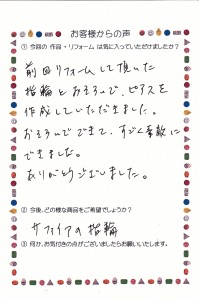 お客様からの声
① 今回の 作品・リフォーム は気に入っていただけましたか？
前回リフォームして頂いた
指輪とおそろいで、ピアスを
作成していただきました。
おそろいでできて、すごく素敵に
できました。
ありがとうございました。
② 今後、どの様な商品をご希望でしょうか？
サファイアの指輪
③ 何か、お気付きの点がございましたらお願いいたします。